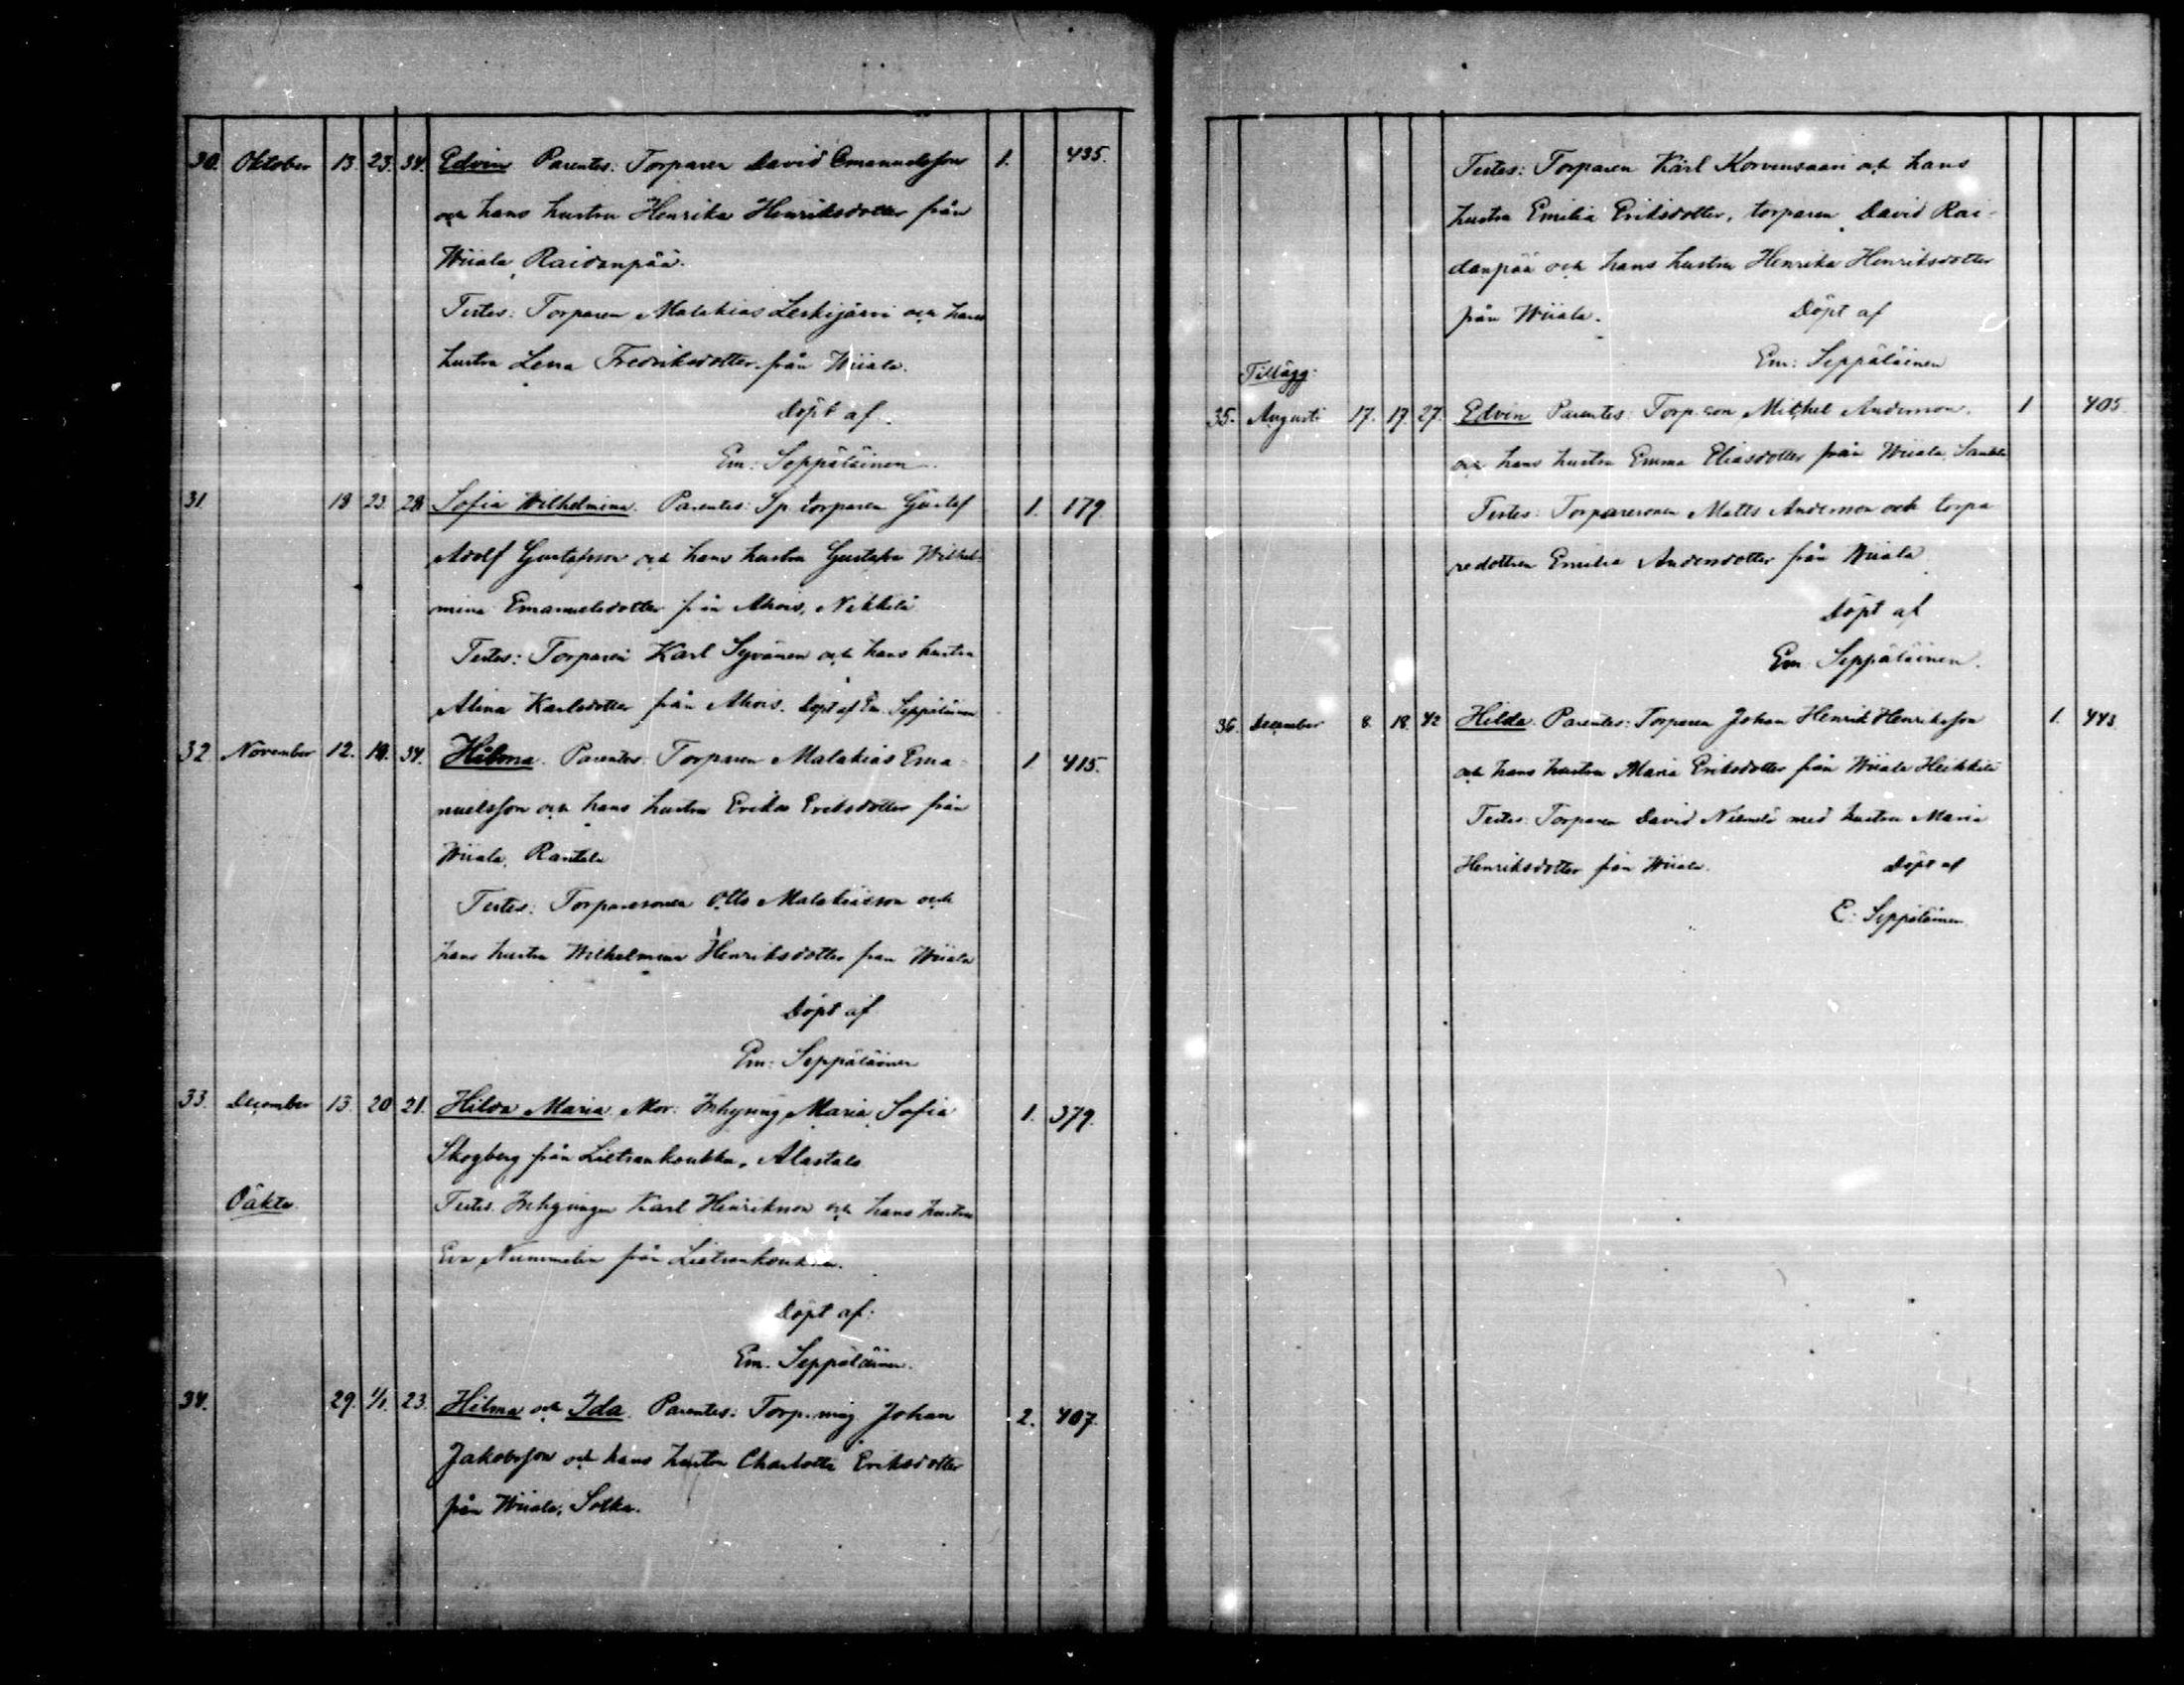 30. Oktober 13. 23. 34. Edvin Parentes: Torparen David Emanuelsson 1. 435.
och hans hustru Henrika Henriksdotter från
Wiiala, Raidanpää.
Testes: Torparen Malakias Leskijärvi och hans
hustru Lena Fredriksdotter från Wiiala.
Döpt af
Em: Seppäläinen
31. 18 23. 28 Sofia Wilhelmina. Parentes: Sp. torparen Gustaf 1. 179.
Adolf Gustafsson och hans hustru Gustafva Wilhel-
mina Emanuelsdotter från Ahois, Nikkilä
Testes: Torparen Karl Syvänen och hans hustru
Alina Karlsdotter från Ahois. Döpt af Em. Seppäläinen
32. November 12. 19. 34. Hilma. Parentes: Torparen Malakias Ema- 1. 415.
nuelsson och hans hustru Erika Eriksdotter från
Wiiala, Rantala
Testes: Torparesonen Otto Malakiasson och
hans hustru Wilhelmina Henriksdotter från Wiiala
Döpt af
Em: Seppäläinen
33. December 13. 20 21. Hilda Maria. Mor: Inhysing Maria Sofia 1. 379.
Skogberg från Lietsankoukku, Alastalo
Oäkta. Testes. Inhysingen Karl Henriksson och hans hustru
Eva Nummelin från Lietsankoukku.
Döpt af:
Em. Seppäläinen.
34. 29. 1/1. 23. Hilma och Ida. Parentes: Torp. måg Johan 2. 407.
Jakobsson och hans hustru Charlotta Eriksdotter
från Wiiala, Sotka.
Testes: Torparen Karl Korvensaari och hans
hustru Emilia Eriksdotter, torparen David Rai-
danpää och hans hustru Henrika Henriksdotter
från Wiiala. Döpt af
Em: Seppäläinen
Tillägg:
35. Augusti 17. 17. 27. Edvin Parentes: Torp. son Michel Andersson. 1 405
och hans hustru Emma Eliasdotter från Wiiala,
Testes: Torparesonen Matts Andersson och torpa
redottren Emilia Andersdotter från Wiiala
Döpt af
Em. Seppäläinen.
36. December 8. 18. 42 Hilda. Parentes: Torparen Johan Henrik Henriksson 1. 443.
och hans hustru Maria Eriksdotter från Wiiala Heikkilä
Testes: Torparen David Niemelä med hustru Maria
Henriksdotter från Wiiala. Döpt af
E: Seppäläinen